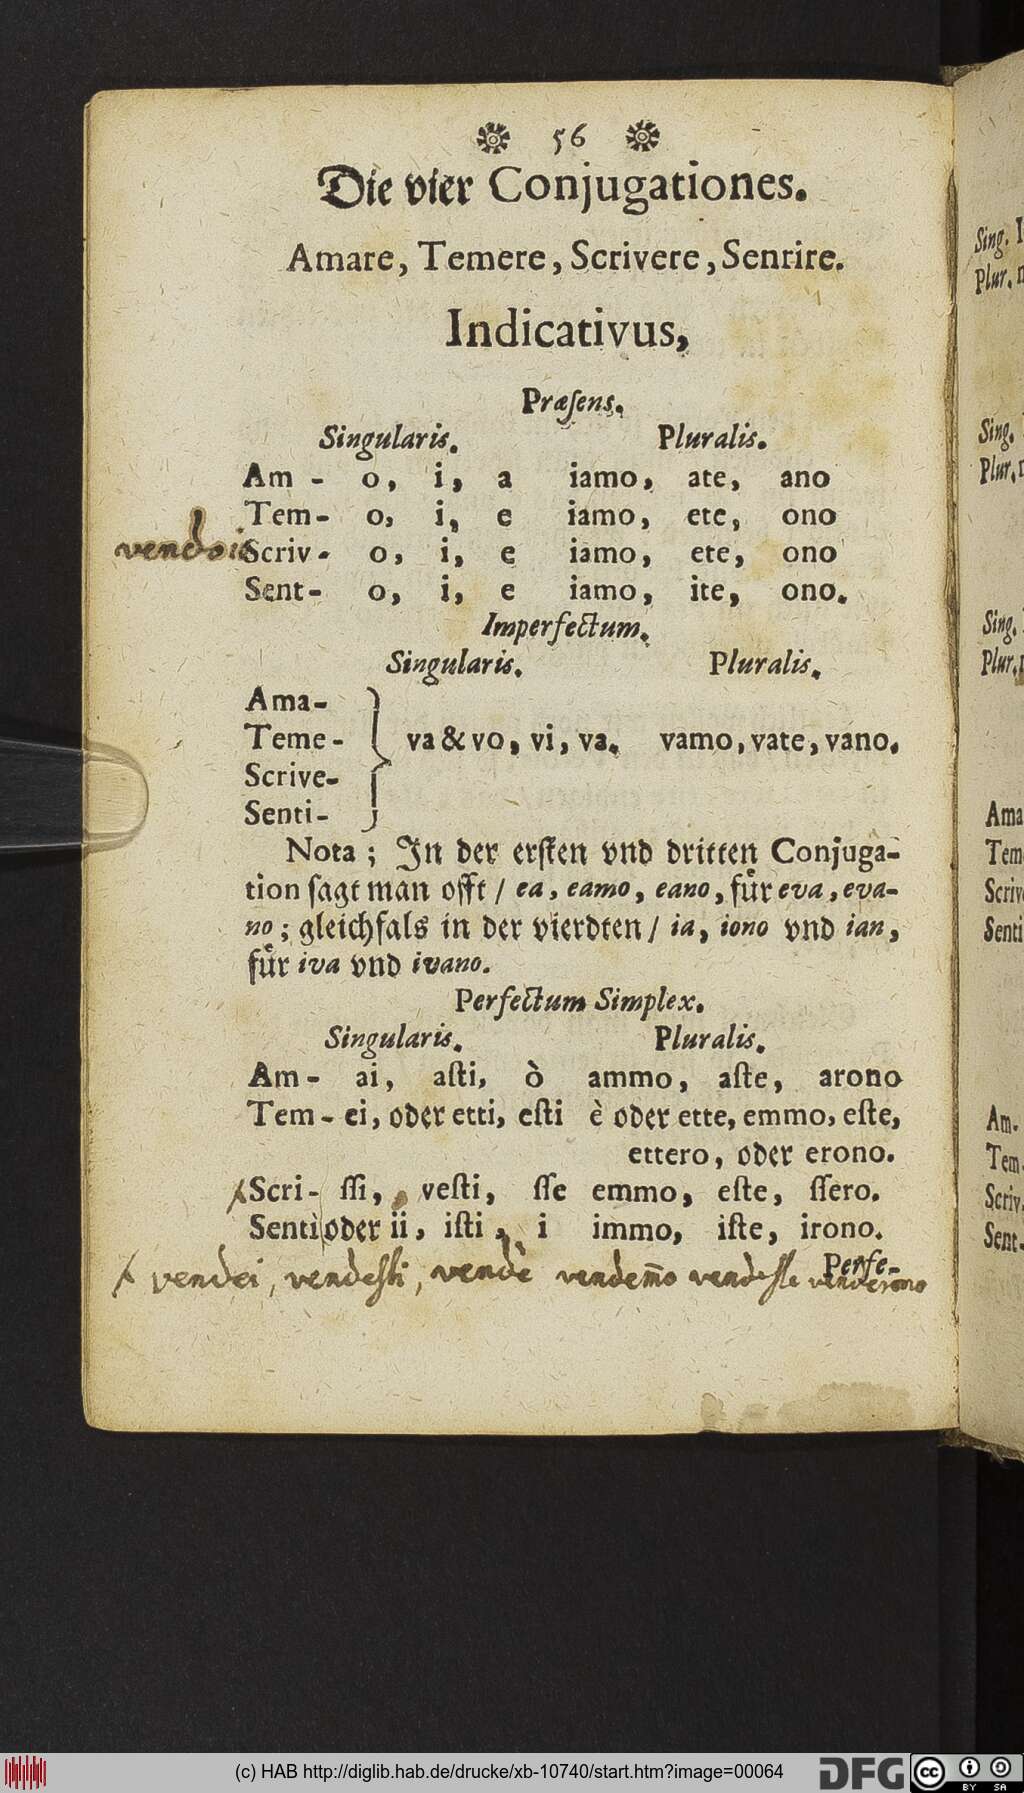 56
Die vier Conjugationes.
Amare, Temere, Scrivere, Senrire.
Indicativus,
Præſens.
Singularis. Pluralis.
Am - o, i, a iamo, ate, ano
Tem- o, i, e iamo, ete, ono
vendo Scriv - o, i, e iamo, ete, ono
Sent- o, i, e iamo, ite, ono.
Imperfectum.
Singularis. Pluralis.
Ama-
Teme- va & vo, vi, va. vamo, vate, vano.
Scrive-
Senti-
Nota ; In der erſten vnd dritten Conjuga-
tion ſagt man offt / ea, eamo, eano, für eva, eva-
no ; gleichfals in der vierdten / ia, iono vnd ian,
für iva vnd ivano.
Perfectum Simplex.
Singularis. Pluralis.
Am- ai, aſti, ò ammo, aſte, arono
Tem- ei, oder etti, eſti è oder ette, emmo, eſte,
ettero, oder erono.
Scri- ſſi, veſti, ſſe emmo, eſte, ſſero.
Senti oder ii, iſti, i immo, iſte, irono.
Perfe-
vendei, vendeſti, vendè vendem̅o vendeſte venderono
Sing.
Plur.
Sing.
Plur.
Sing.
Plur.
Ama
Tem
Scriv
Senti
Am.
Tem.
Scriv.
Sent-
(c) HAB http://diglib.hab.de/drucke/xb-10740/start.htm?image=00064
DFG
cc
BY SA